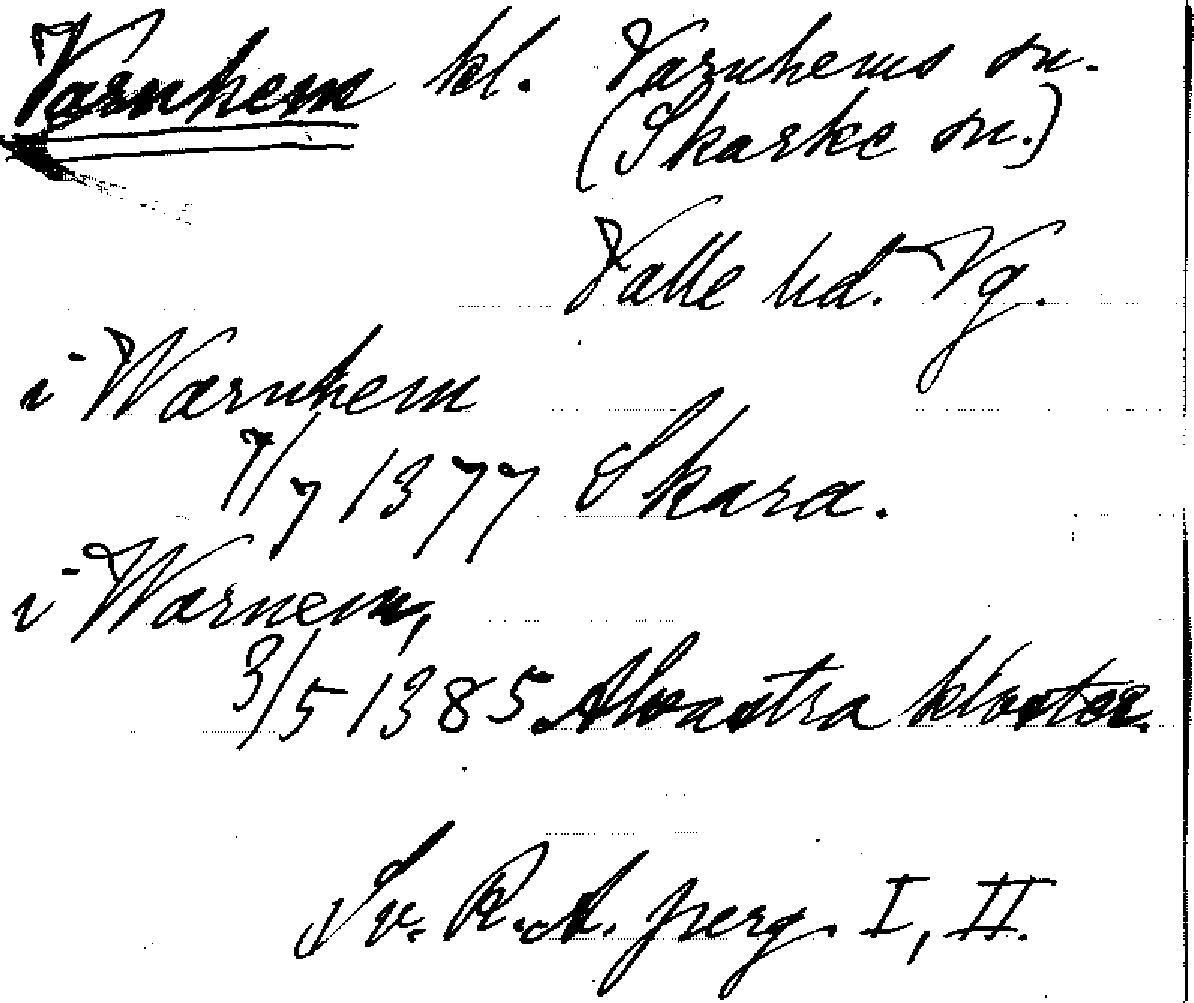 Varnhem kl. Varnhems sn.
(Skarke sn.)
Valle hd. Vg.
i Warnhem
7/7 1377 Skara.
i Warnem,
3/5 1385 Alvastra kloster.
Sv. R.A. perg. I, II.